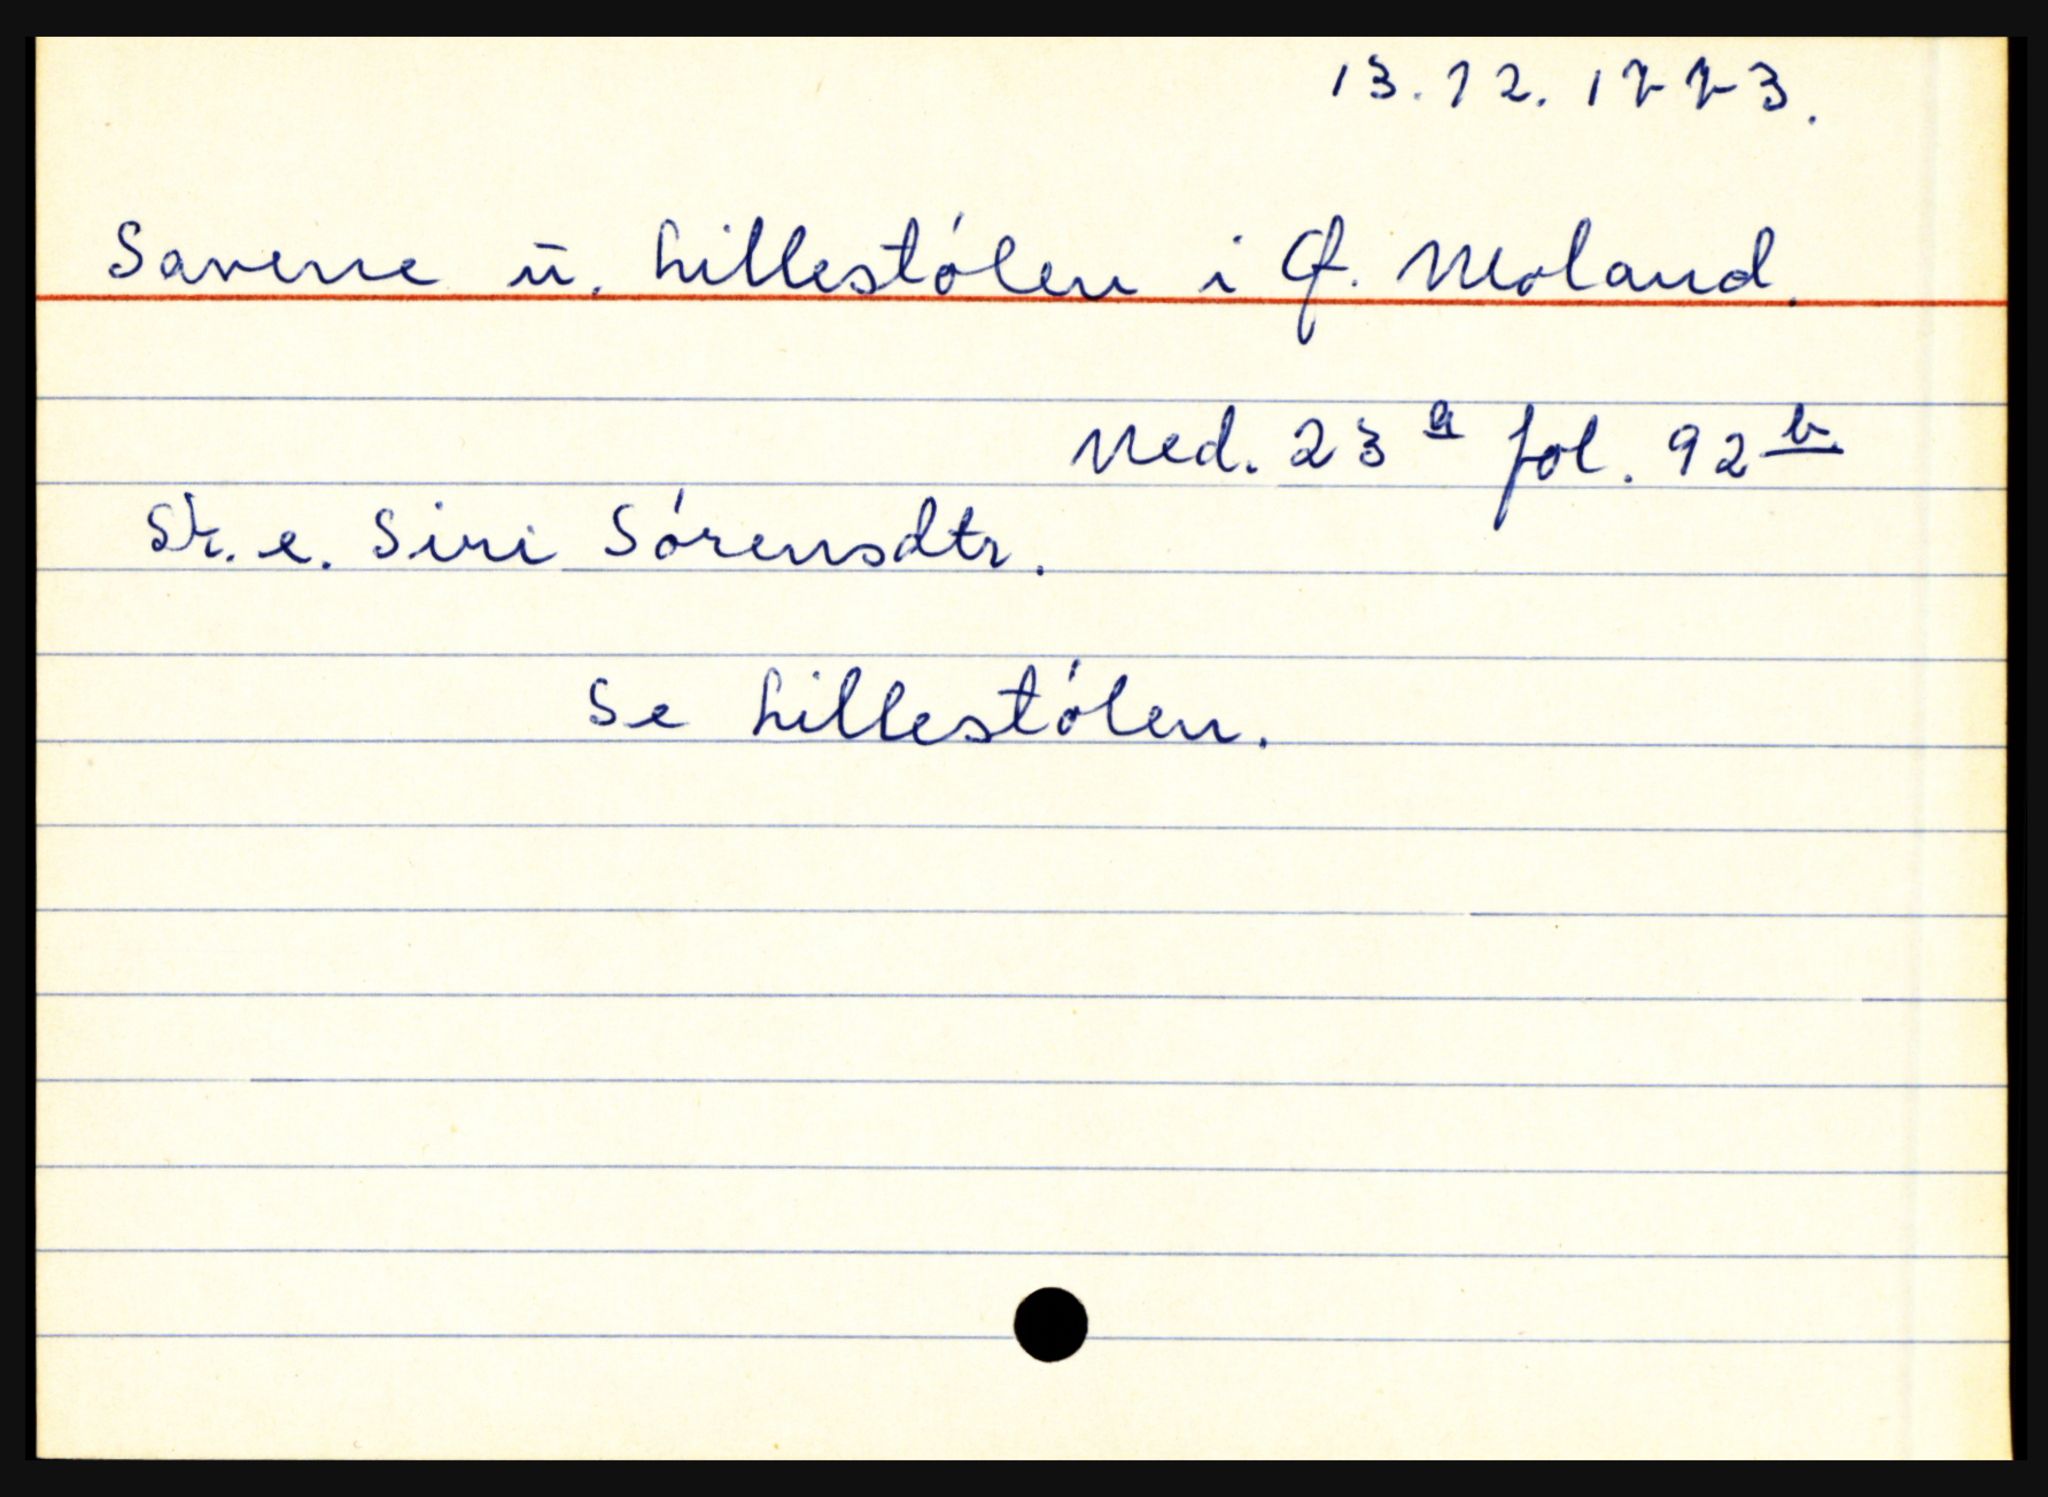 13.12.1773.
Savene ū. Lillestólen i Ø. Moland.
Ned. 23 a fol. 92 b.
Sk. e. Siri Sórensdtr.
Se Lillestólen.